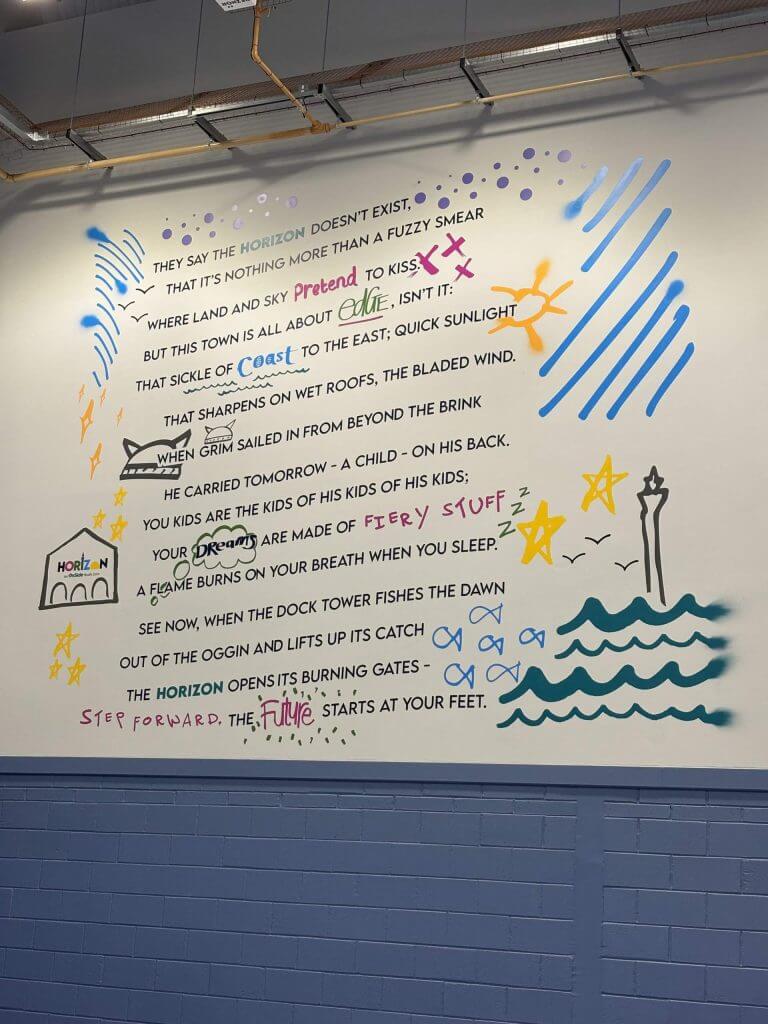 THEY SAY THE HORIZON DOESN'T EXIST,
THAT IT'S NOTHING MORE THAN A FUZZY SMEAR
WHERE LAND AND SKY Pretend TO KISS.
BUT THIS TOWN IS ALL ABOUT edGE, ISN'T IT:
THAT SICKLE OF Coast TO THE EAST; QUICK SUNLIGHT
THAT SHARPENS ON WET ROOFS, THE BLADED WIND.
WHEN GRIM SAILED IN FROM BEYOND THE BRINK
HE CARRIED TOMORROW - A CHILD - ON HIS BACK.
YOU KIDS ARE THE KIDS OF HIS KIDS OF HIS KIDS;
YOUR DReamS ARE MADE OF FIERY STUFF
zzz
A FLAME BURNS ON YOUR BREATH WHEN YOU SLEEP.
HORIZON
SEE NOW, WHEN THE DOCK TOWER FISHES THE DAWN
OUT OF THE OGGIN AND LIFTS UP ITS CATCH
THE HORIZON OPENS ITS BURNING GATES -
STEP FORWARD. THE FuTuRe STARTS AT YOUR FEET.